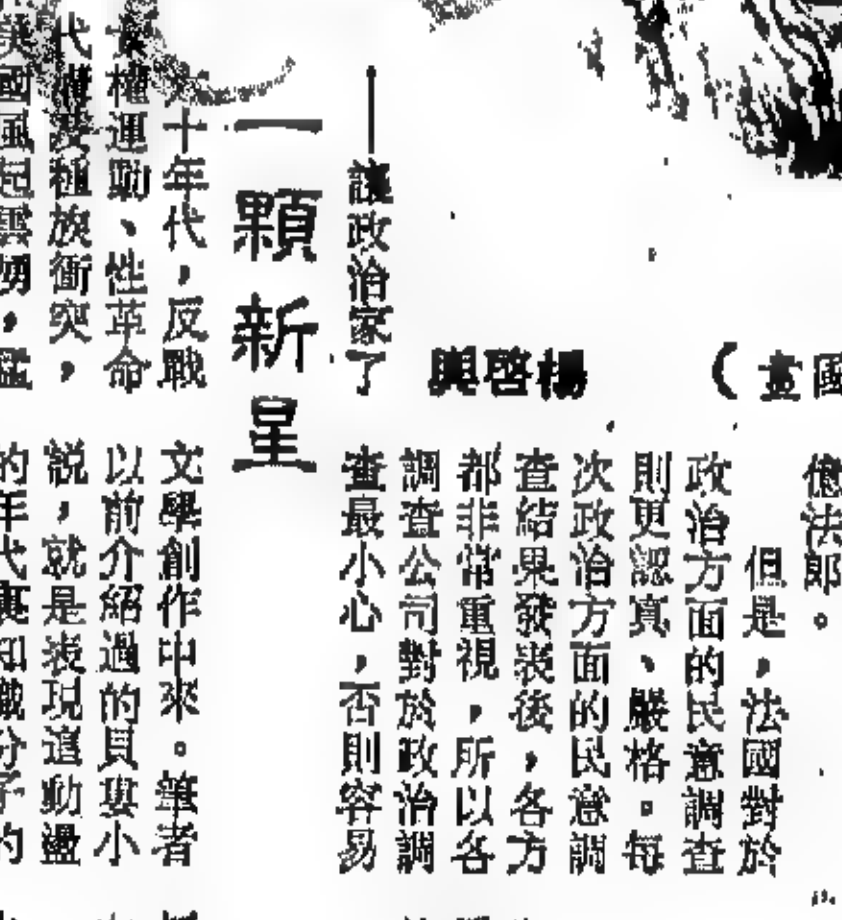 億法郎。
但是，法國對於
政治方面的民意調查
則更認真、嚴格。每
次政治方面的民意調
查結果發表後，各方
都非常重視，所以各
調查公司對於政治調
查最小心，否則容易
（畫國
楊啓興
——讓政治家了
一顆新星
十年代，反戰
女權運動、性革命
代溝及種族衝突，
美國風起雲湧，猛
文學創作中來。筆者
以前介紹過的貝婁小
説，就是表現這動盪
的年代裏知識分子的